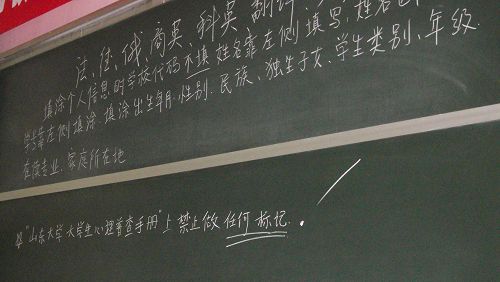 法、佳、俄、商英、科英、翻译
填涂个人信息时学校代码不填姓名靠左侧填写,姓名
学号靠左侧填涂、填涂出生年月、性别、民族、独生子女、学生类别、年级
在做专业、家庭所在地
"山东大学大学生心理普查手册"上禁止做任何标记.